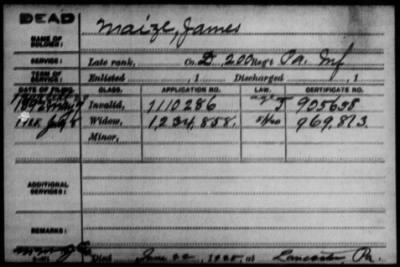 DEAD
NAME OF SOLDIER: Maize, James
SERVICE: Late rank, Co. D, 200 Reg't Pa. Inf
TERM OF SERVICE: Enlisted , 1 Discharged , 1
DATE OF FILING. CLASS. APPLICATION NO. LAW. CERTIFICATE NO.
Invalid, 1110286 905658
Widow, 1,234,858. 969,813
Minor,
ADDITIONAL SERVICES:
REMARKS:
Died June 22, at Lancaster, Pa.